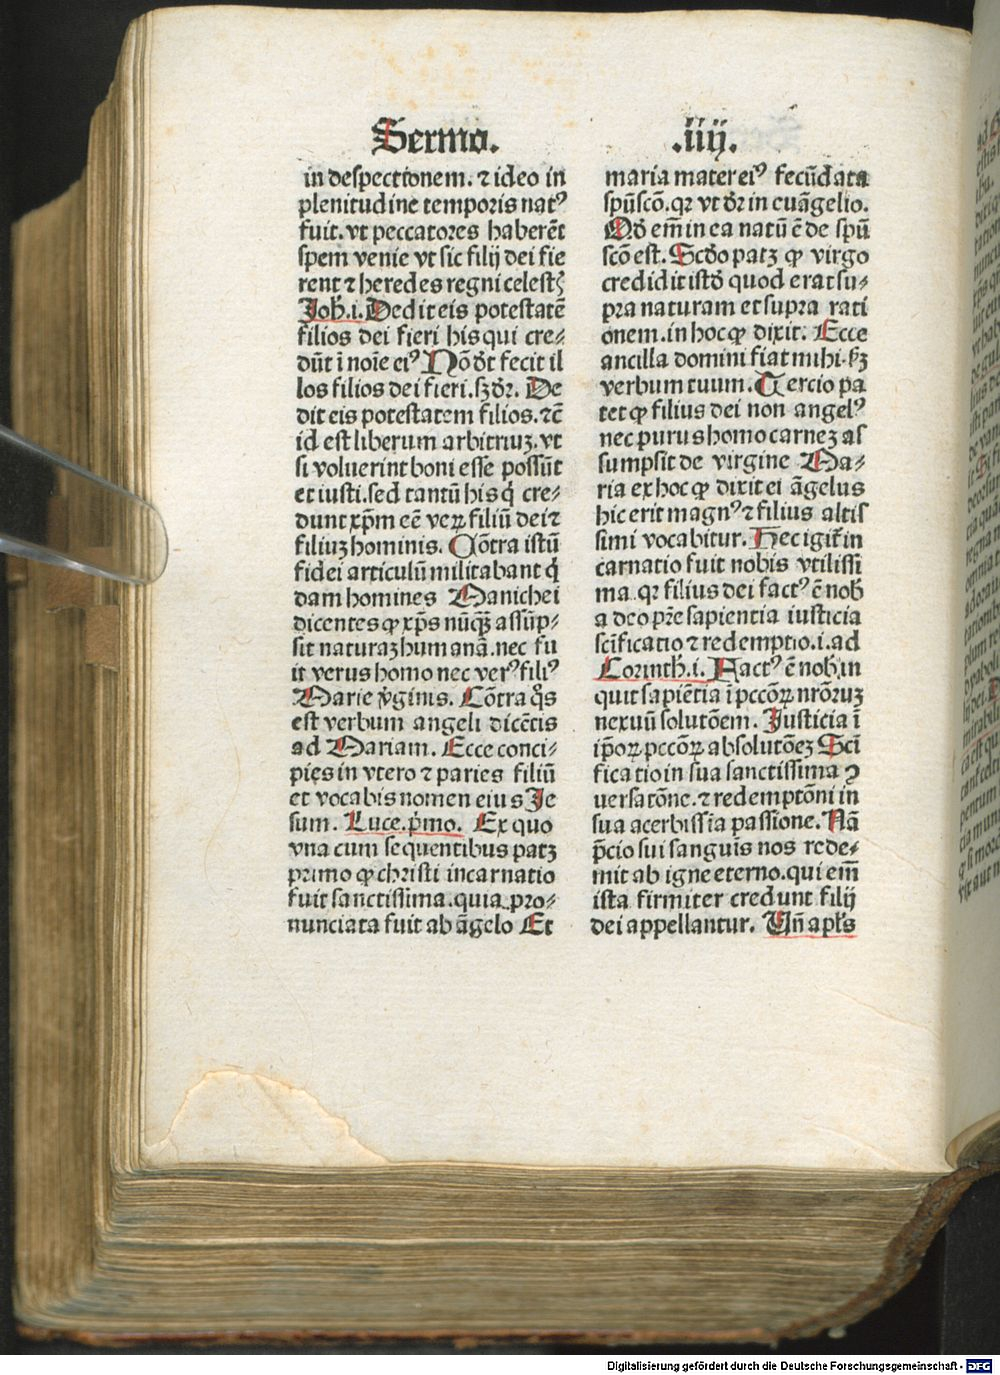 Sermo. .iiij.
in despectionem. ⁊ ideo in
plenitudine temporis natꝰ
fuit. vt peccatores haberēt
spem venie vt sic filij dei fie
rent ⁊ heredes regni celestꝭ
Joh̄.i. Dedit eis potestatē
filios dei fieri his qui cre⸗
dūt ī noīe eiꝰ Nō dr̄t fecit il
los filios dei fieri. sꝫ dr̄. De
dit eis potestatem filios. ⁊c̄
id est liberum arbitriuꝫ. vt
si voluerint boni esse possūt
et iusti. sed tantū his q̇ cre⸗
dunt xp̄m eē veꝝ filiū dei ⁊
filiuꝫ hominis. Cōtra istū
fidei articulū militabant q̇
dam homines Manichei
dicentes ꝙ xp̄s nūqꝫ assūp⸗
sit naturaꝫ humanā. nec fu
it verus homo nec verꝰ filiꝰ
Marie v̇ginis. Cōtra q̄s
est verbum angeli dicētis
ad Mariam. Ecce conci⸗
pies in vtero ⁊ paries filiū
et vocabis nomen eius Je
sum. Luce. p̄mo. Ex quo
vna cum sequentibus patꝫ
primo ꝙ christi incarnatio
fuit sanctissima. quia pro⸗
nunciata fuit ab āgelo Et
maria mater eiꝰ fecūdata
spūscō. qꝛ vt dr̄ in euāgelio.
Qd̄ em̄ in ea natū ē de spū
scō est. Scd̄o patꝫ ꝙ virgo
credidit istd̄ quod erat su⸗
pra naturam et supra rati
onem. in hoc ꝙ dixit. Ecce
ancilla domini fiat mihi. ẜꝫ
verbum tuum. Tercio pa
tet ꝙ filius dei non angelꝰ
nec purus homo carneꝫ as
sumpsit de virgine Ma⸗
ria ex hoc ꝙ dixit ei āgelus
hic erit magnꝰ ⁊ filius altis
simi vocabitur. Hec igit̄ in
carnatio fuit nobis vtilissi
ma. qꝛ filius dei factꝰ ē nob̄
a deo pr̄e sapientia iusticia
scīficatio ⁊ redemptio. i. ad
Corinth̄.i. Factꝰ ē nob̄. in
quit sapiētia ī pccōꝝ nrōruꝫ
nexuū solutōem. Justicia ī
ip̄oꝝ pccōꝝ absolutōeꝫ Scī
ficatio in sua sanctissima ꝯ
uersatōne. ⁊ redemptōni in
sua acerbissīa passione. Nā
p̄cio sui sanguīs nos rede⸗
mit ab igne eterno. qui em̄
ista firmiter credunt filij
dei appellantur. Vn̄ apl̄s
Digitalisierung gefördert durch die Deutsche Forschungsgemeinschaft - DFG